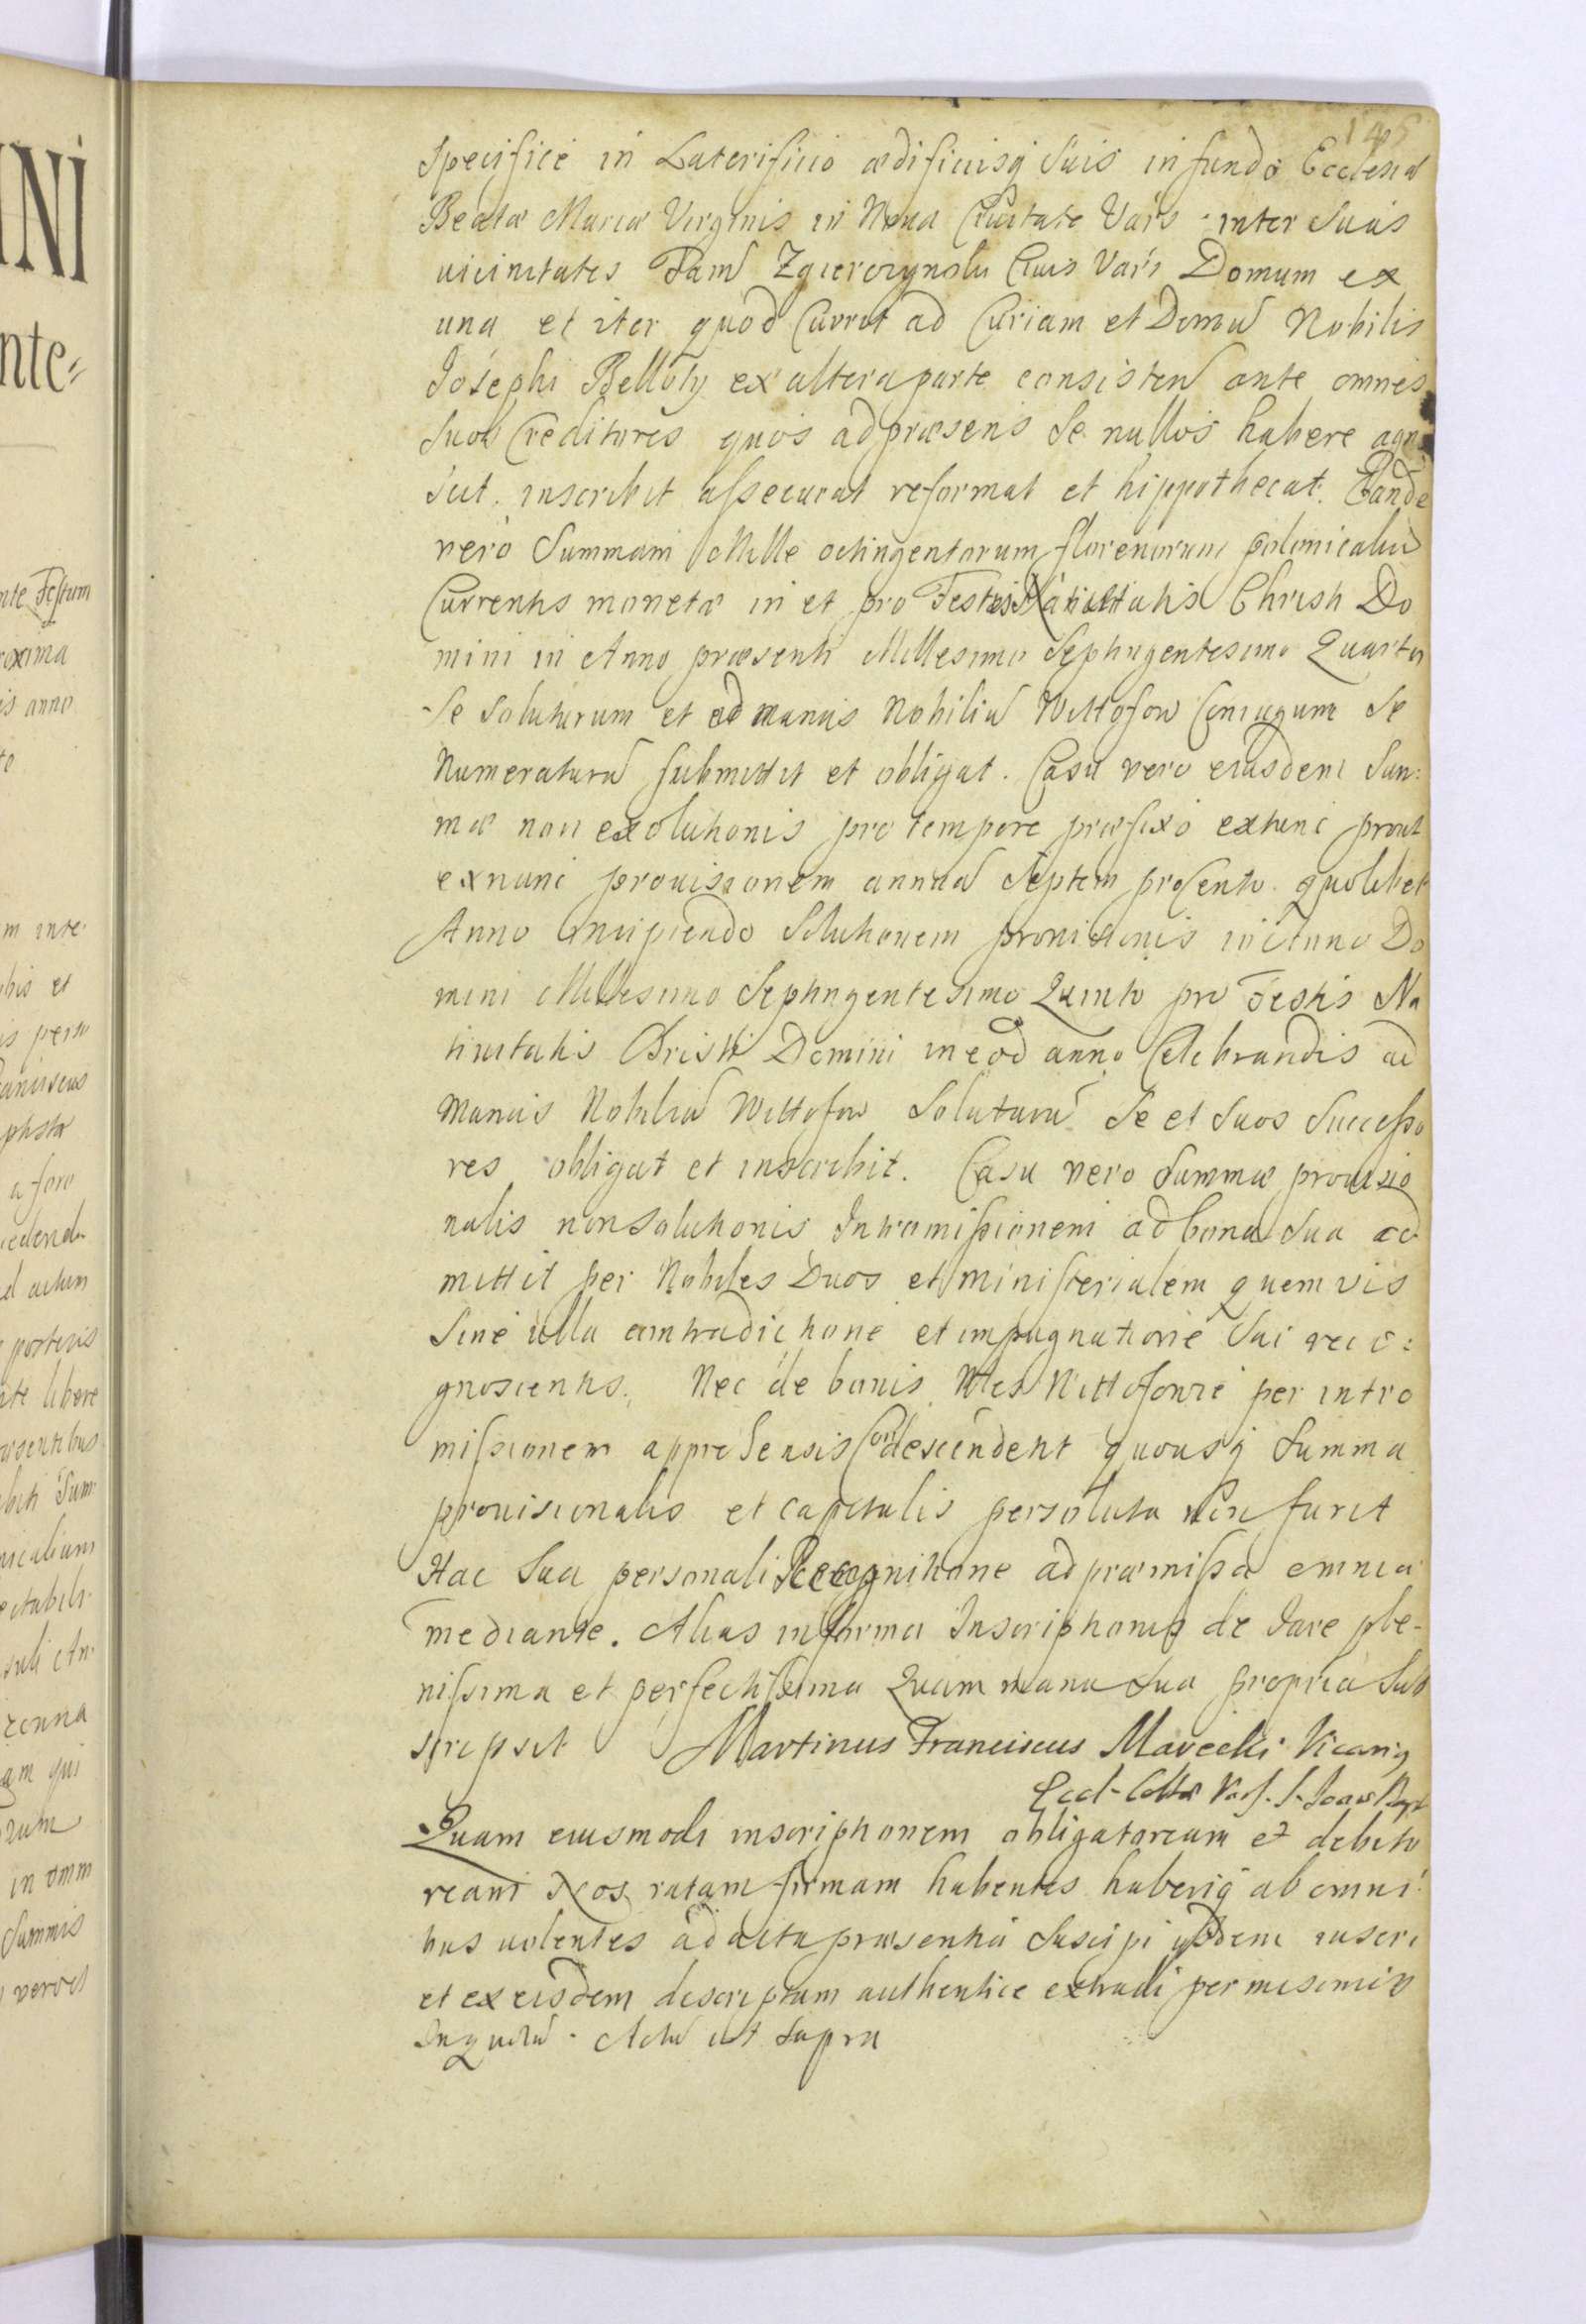 145
specifice in Laterificio ædificiisq suis in fundo Ecclesiæ
Beatæ Mariæ Virginis in Noua Ciuitate Vars. inter suas
uicinitates Fam Zgierczynski Ciuis Vars Domum ex
una et iter quod Currit ad Curiam et Domu Nobilis
Josephi Bellóty ex altera parte consisten ante omnes
suos Creditores quos ad præsens se nullos habere agno
scit. inscribit assecurat reformat et hippothecat. Eande
vero Summam Mille octingentorum florenorum polonicaliu
Currentis monetæ in et pro Festis Natiuitatis Christi Do
mini in Anno præsenti Millesimo Septingentesimo Quarto
se soluturum et ad manus Nobiliu Wittofow Coniugum se
Numeraturu submittit et obligat. Casu vero eiusdem Sum:
mæ non exolutionis pro tempore præfixo extunc prout
exnunc prouisionem annua Septem procento quolibet
Anno Incipiendo Solutionem prouisionis in Anno Do
mini Millesimo Septingentesimo Quinto pro Festis Na
tiuitatis Christi Domini in eod anno Celebrandis ad
manus Nobiliu Wittofow Soluturu Se et Suos Successo
res obligat et inscribit. Casu vero Summæ prouisio
nalis non Solutionis Intromissionem ad bona Sua ad
mittit per Nobiles Duos et ministerialem quemvis
Sine ulla contradictione et impugnatione Sui reco:
gnoscentis. Nec de bonis Nles Wittofowie per intro
missionem apprehensis Condescendent quousq Summa
prouisionalis et capitalis persoluta non fuerit
Hac Sua personali Recognitione ad præmissa omnia
mediante. Alias in forma Inscriptionis de Jure ple-
nissima et perfectissima Quam manu Sua propria Sub
scripsit Martinus Franciscus Marecki Vicarig
Eccl. Collæ Vars. S. Joan Bapt
Quam eiusmodi inscriptionem obligatoriam et debito
riam Nos ratam firmam habentes haberiq ab omni
bus uolentes ad acta præsentia Suscipi ijsdem inseri
et ex eisdem descriptum authentice extradi permisimus
Inquatu. Actu ut Supra